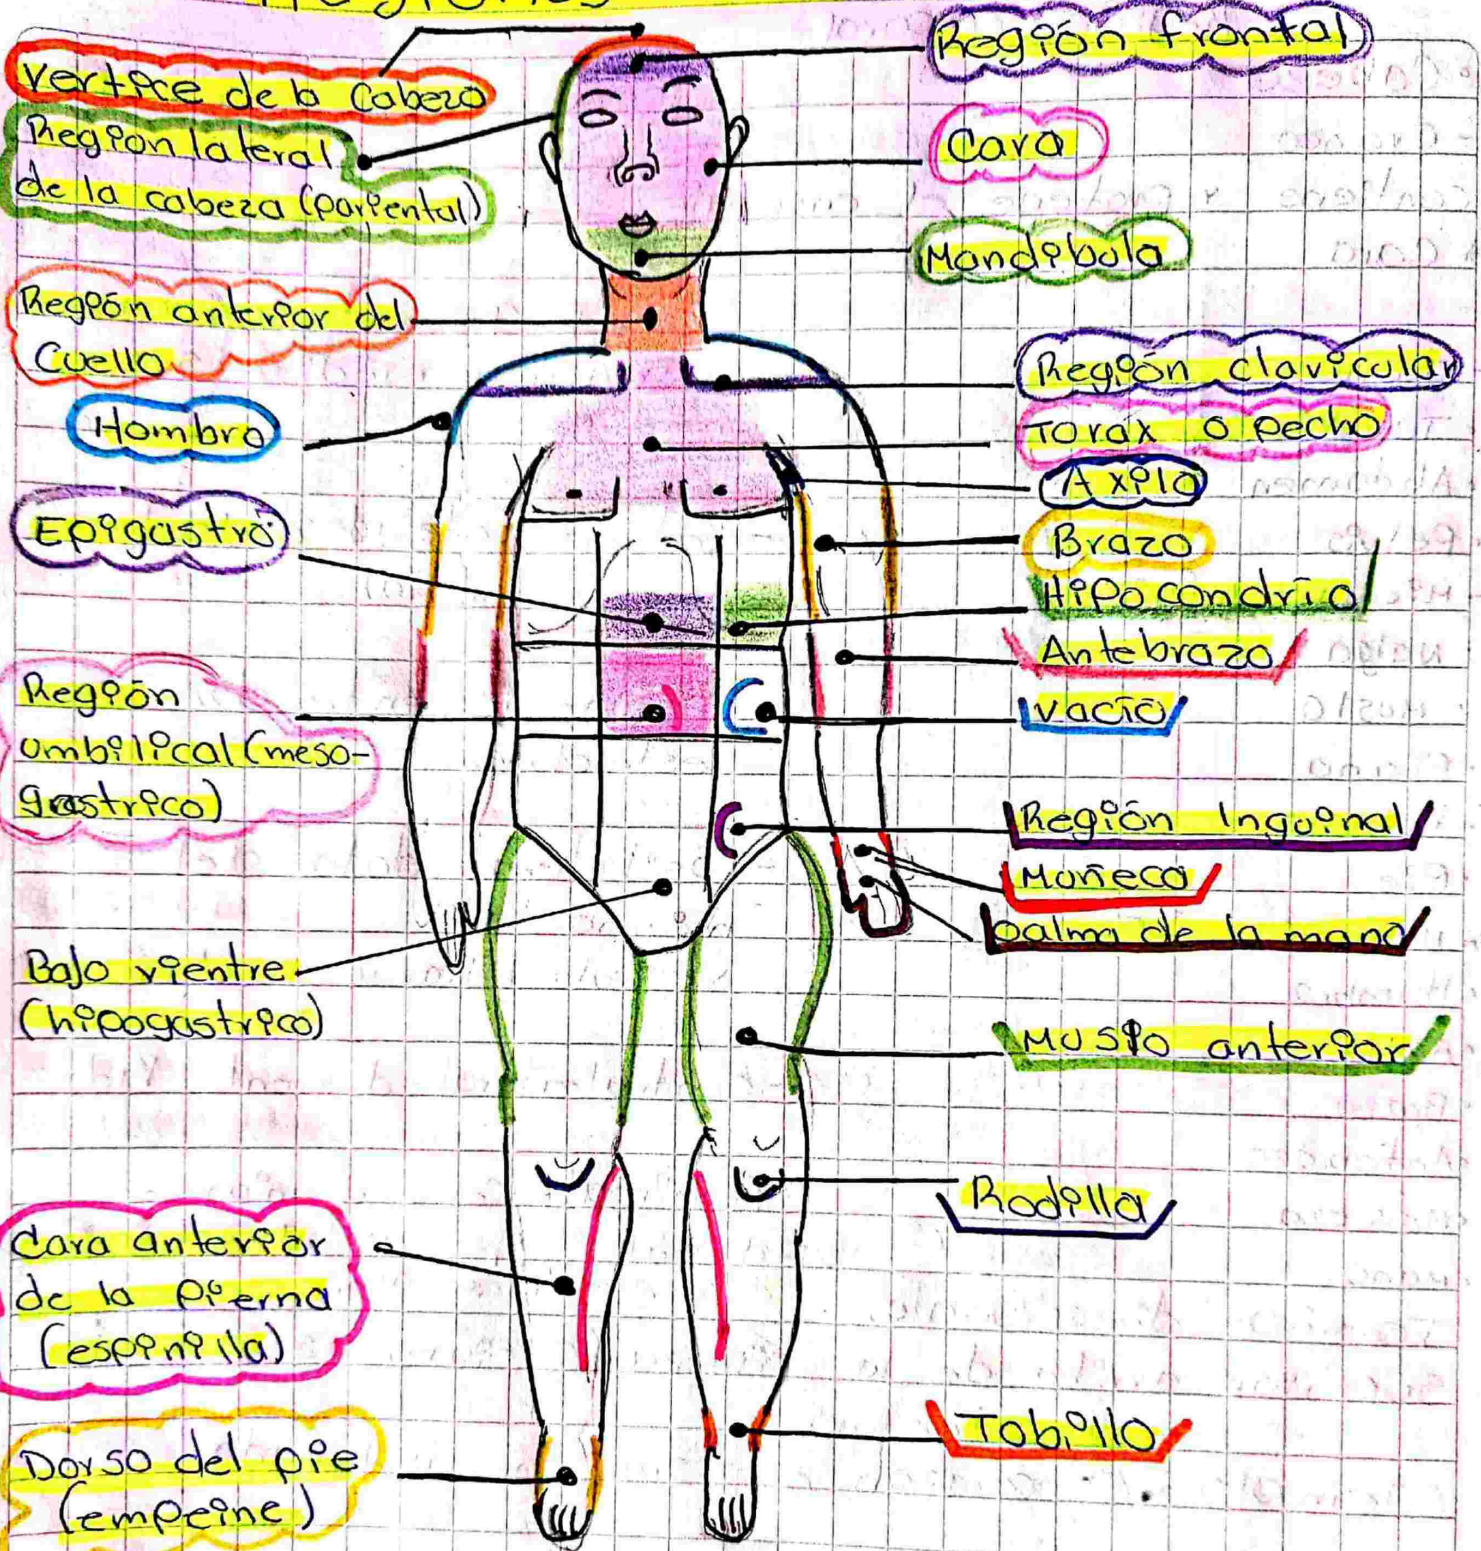 Regiones
Vertice de la Cabeza
Region lateral
de la cabeza (pariental)
Región anterior del
Cuello
Hombro
Epigastrio
Región
umbilical (meso-
gastrico)
Bajo vientre
(hipogastrico)
Cara anterior
de la Pierna
(espinilla)
Dorso del pie
(empeine)
Región frontal
Cara
Mandibula
Región clavicular
Torax o pecho
Axila
Brazo
Hipocondrio
Antebrazo
Vacío
Región Inguinal
Muñeca
palma de la mano
Muslo anterior
Rodilla
Tobillo